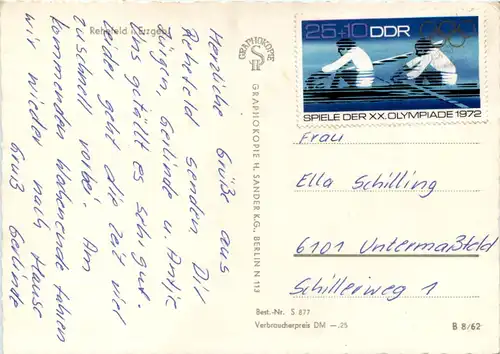 Rehefeld i. Erzgeb.
Herzliche Grüße aus
Rehefeld senden Dir
Jürgen, Gerlinde u. Antje
Uns gefällt es sehr gut.
Leider geht die Zeit viel
zu schnell vorbei. Am
kommenden Wochenende fahren
wir wieder nach Hause
Gruß Gerlinde
GRAPHOKOPIE
SH
GRAPHOKOPIE H. SANDER KG., BERLIN N 113
25+10 DDR
SPIELE DER XX. OLYMPIADE 1972
Frau
Ella Schilling
6101 Untermaßfeld
Schillerweg 1
Best.-Nr. S 877
Verbraucherpreis DM —.25
B 8/62